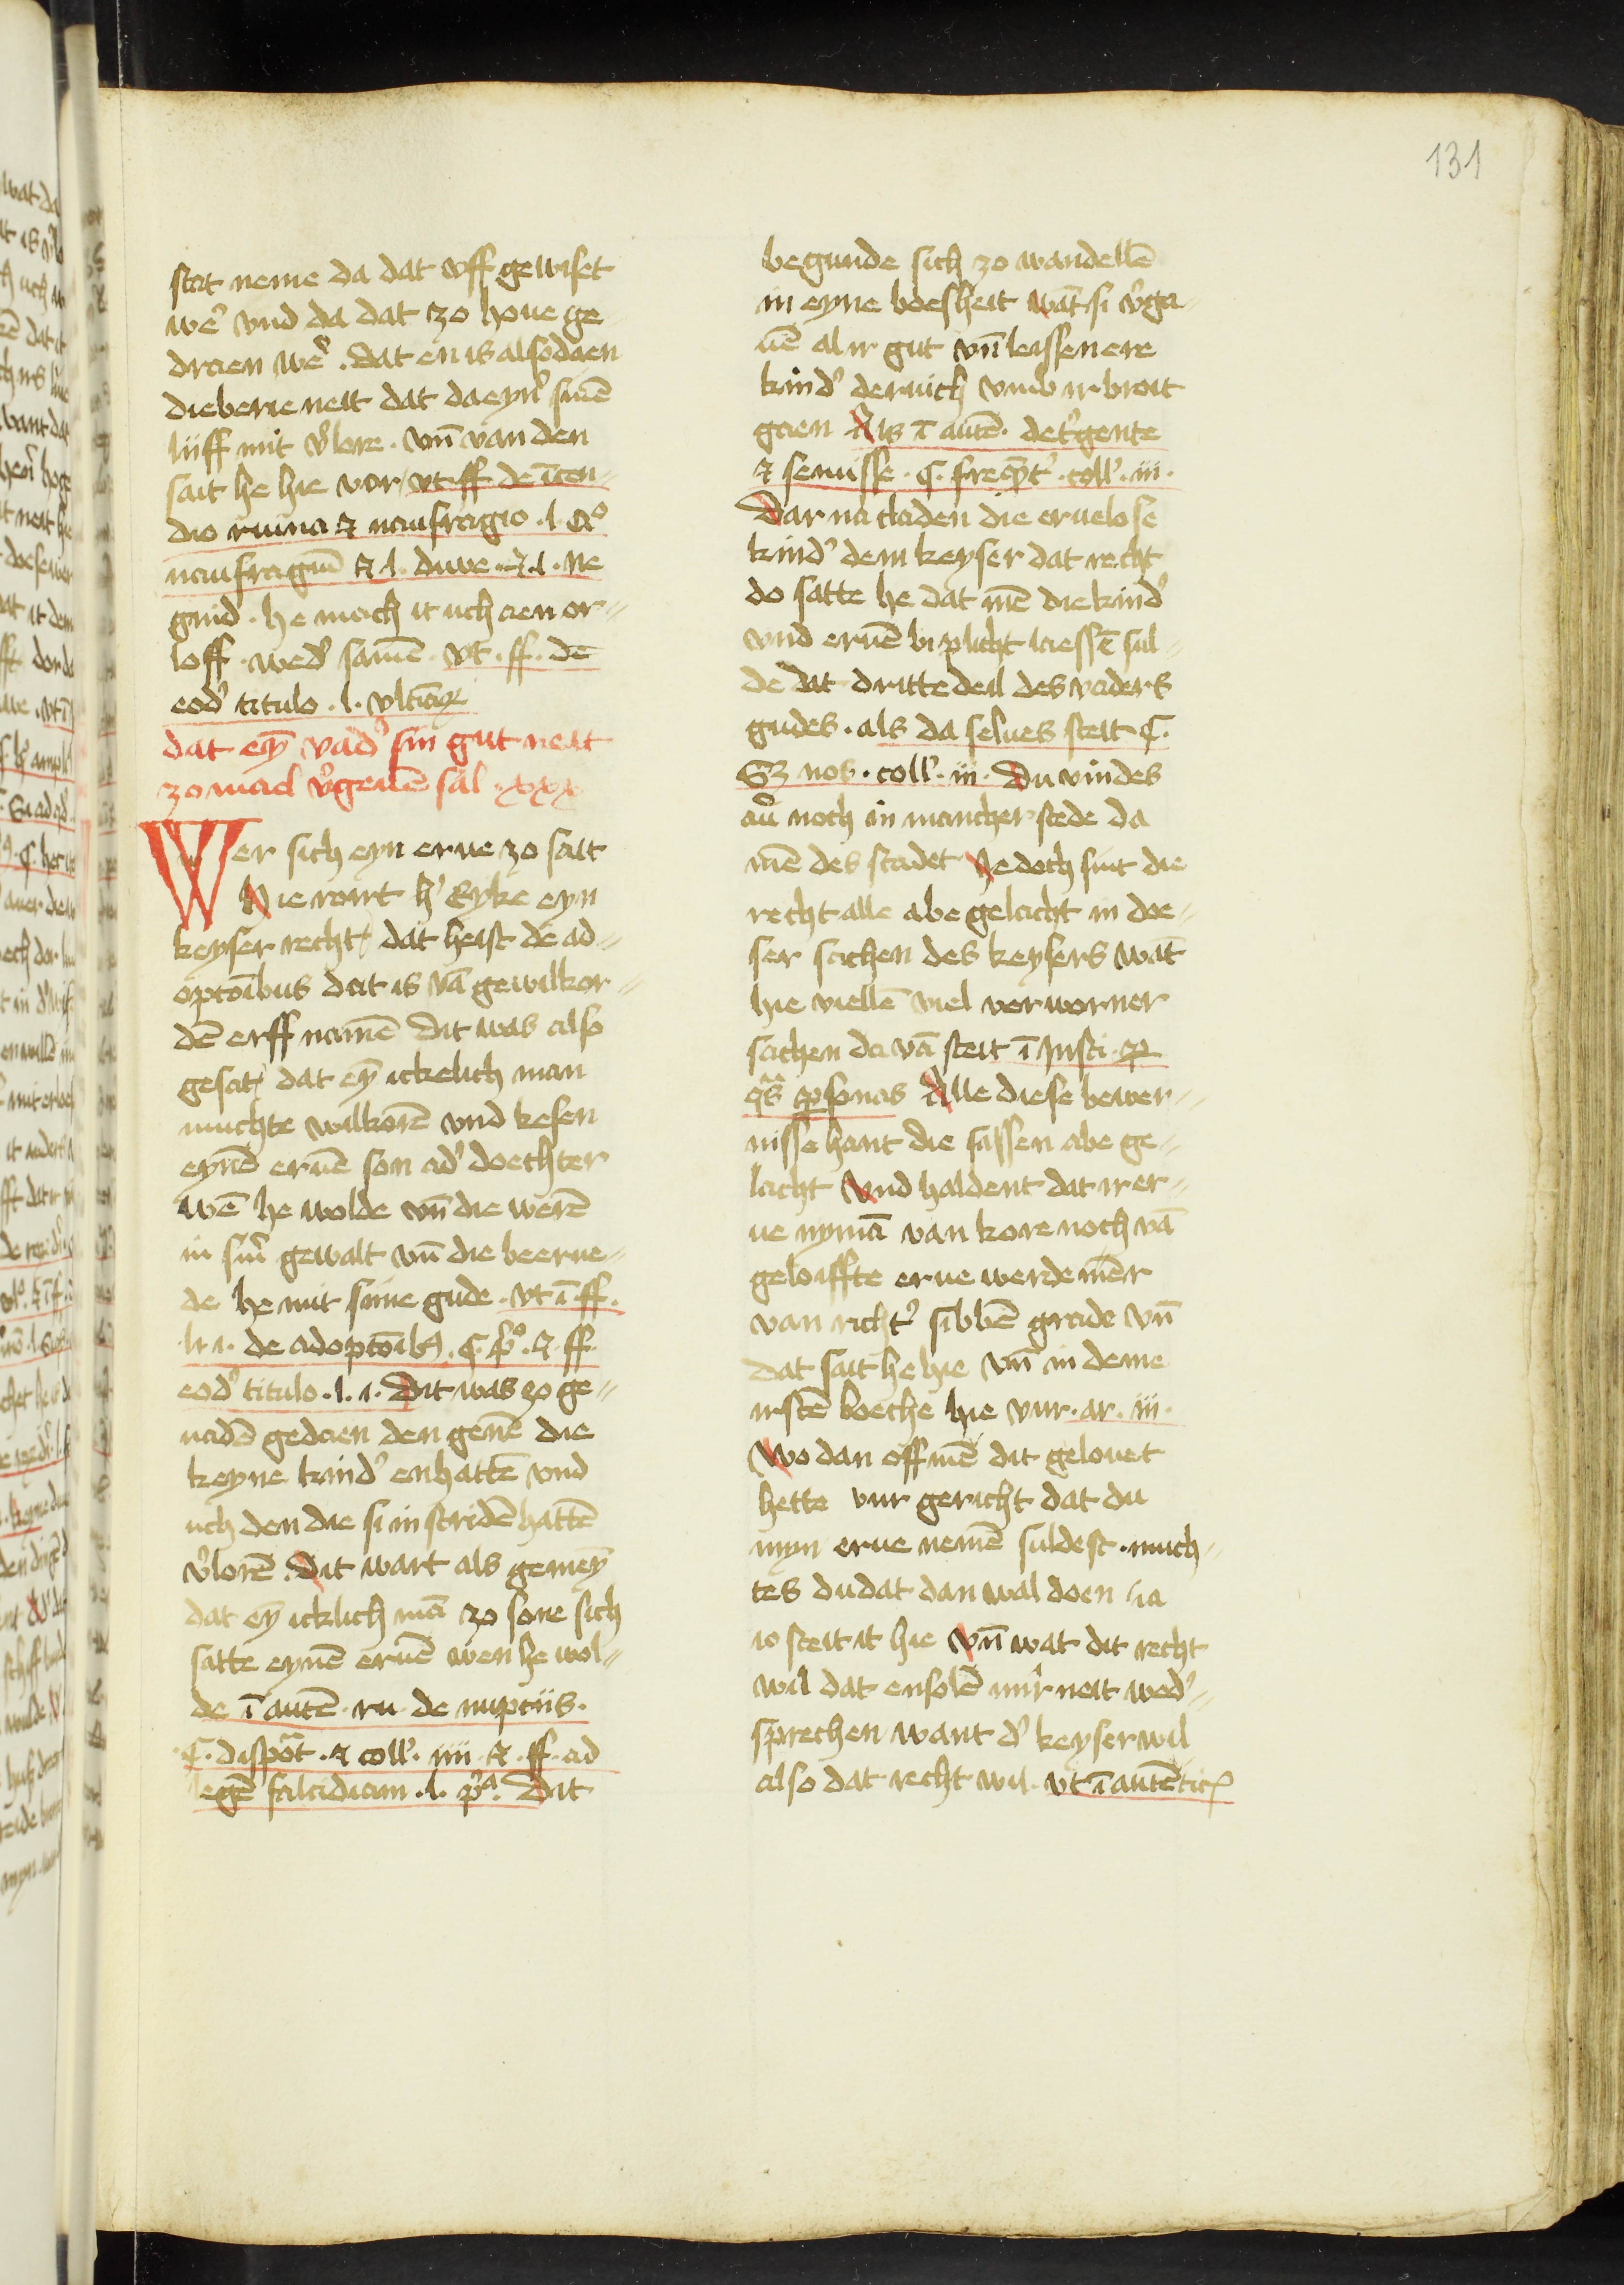 131
stat neme da dat vff gewiset
we᷑ vnd da dat zo houe ge-
draen we᷑ . dat en is alsodaen
dieberie neit dat da eyn᷑ sinē
lüff mit v᷑lore . vn̄ van den
sait he hie vor vt . ff de īcen-
dio ruina ⁊ naufragio . l . Qo
naufragiū ⁊ l . duve . ⁊ l . Ne
quid . he mach it uch aen or-
loff . wed᷑ samē . vt . ff . de
eod᷑ titulo . l . vltīaꝫ
dat eyn̄ vad᷑ sin gut neit
zo mael v᷑geuē sal . xxx
Wer sich eyn erue zo satt
Hie rourt h᷑ Eyke eyn
keyser recht / dat heist de ad-
optoībus dat is vā gewilkor-
dē erff namē dit was also
gesat / dat eyn̄ ickelich man
muchte wilkorē vnd kesen
eynē eruē son ad᷑ doechter
wē he wolde vn̄ die werē
in sin᷑ gewalt vn̄ die beerue-
de he mit sime gude . vt ī . ff .
li i . de adoptoībꝫ . C . p᷑o . ⁊ ff
eod᷑ titulo . l . i . Dit was zo ge-
nadē gedaen den genē die
keyne kind᷑ enhattē vnd
uch den die si in stridē hattē
v᷑lorē . dit wart als gemeyn̄
dat eyn̄ icklich mā zo sone sich
satte eynē eruē wen he wol-
de ī autē . ru . de nuptiis .
C . dispōt . ⁊ coll᷑ . iiii . ⁊ . ff . ad
legē falcidiam . l . p᷑a . Dit
begunde sich zo wandellē
in eyne boesheit wāt si v᷑ga-
uē al ir gut vn̄ leissen ere
kind᷑ dernich vmb ir broit
gaen Als ī autē . de t᷑gente
⁊ semisse . C . freqn̄t᷑ . coll᷑ . iii .
Dar na claden die eruelose
kind᷑ dem keyser dat recht
do satte he dat mē die kind᷑
vnd eruē bi plicht laessē sul-
de dat dritte deil des vaders
gudes . als da selues steit C .
Sꝫ nos . coll᷑ . iii . Du vindes
au᷑ noch in mancher stede da
mē des stadet Jedoch sint die
recht alle abe gelacht in doe-
ser sachen des keysers wāt
hie viellē viel verworner
sachen da vā steit ī Insti . ꝑ
qās ꝑsonas Alle diese bewer-
nisse hant die sassen abe ge-
lacht Vnd haldent dat ir er-
ue nymā van kore noch vā
geloiffte erue werde mer
van richt᷑ sibbē grade vn̄
dat sait he hie vn̄ in deme
irstē boeche hie vur . ar . iii .
Wo dan off mē dit gelouet
hette vur gericht dat du
myn erue nemē suldest . much-
tes du dat dan wal doen / ia
io steit it hie Vn̄ wat dit recht
wil dat ensolē mir neit wed᷑-
sprechen want d᷑ keyser wil
also dat recht wil . vt ī autētic᷑